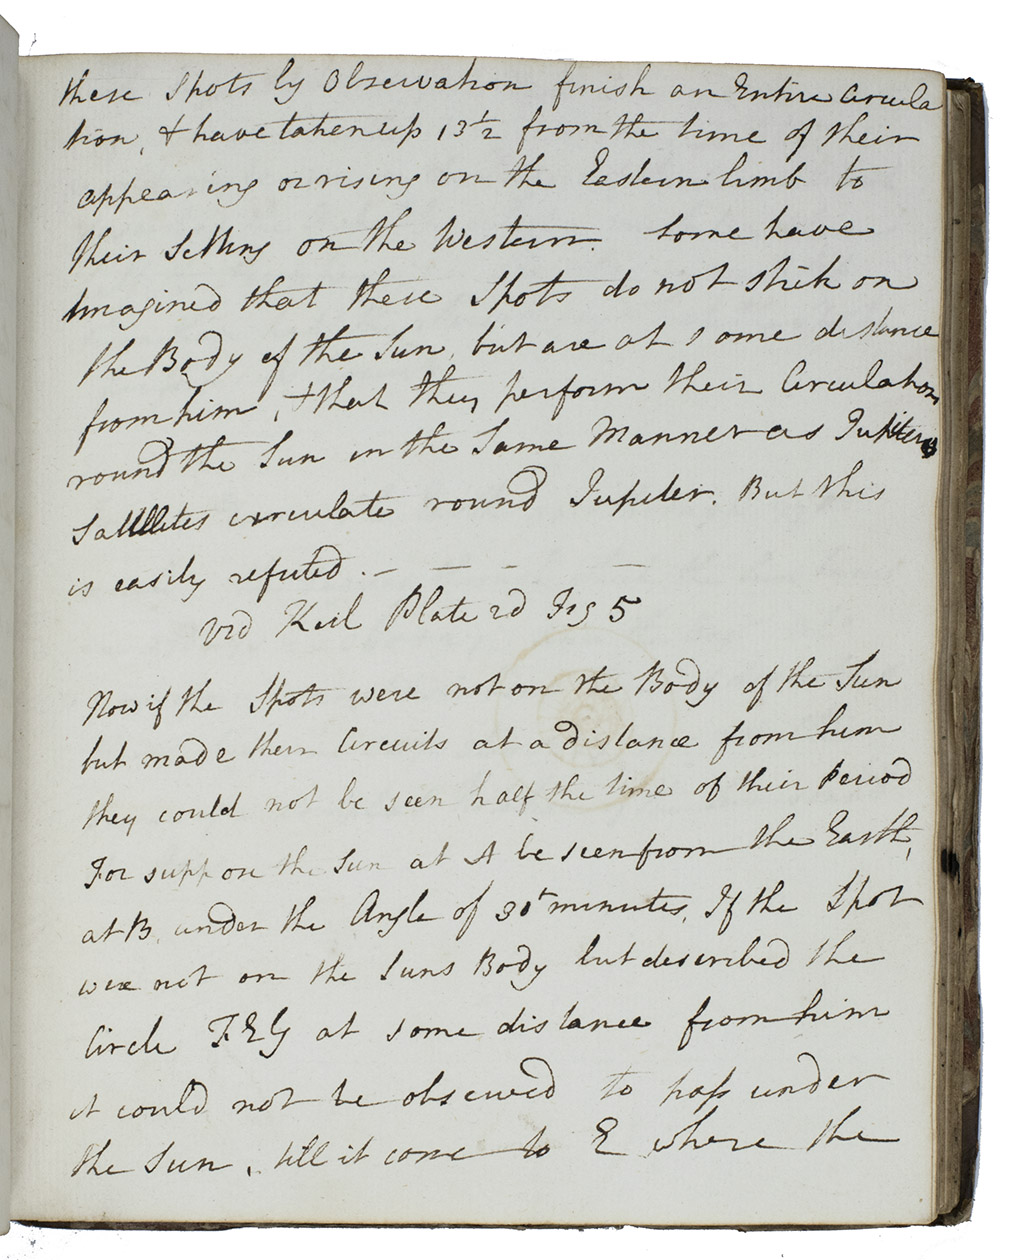 these Spots by Observation finish an Entire Circula
tion, & have taken up 13 1/2 from the time of their
appearing or rising on the Eastern limb to
their Setting on the Western. Some have
Imagined that these Spots do not stick on
the Body of the Sun, but are at some distance
from him, & that they perform their Circulation
round the Sun in the Same Manner as Jupiters
Satellites circulate round Jupiter. But this
is easily refuted. — — - —
Vid Keil Plate 2d Fig 5
Now if the Spots were not on the Body of the Sun
but made their Circuits at a distance from him
they could not be seen half the time of their Period
For suppose the Sun at A be seen from the Earth,
at B, under the Angle of 30 minutes, If the Spot
were not on the Suns Body but described the
Circle FEG at some distance from him
it could not be observed to pass under
the Sun, till it come to E where the